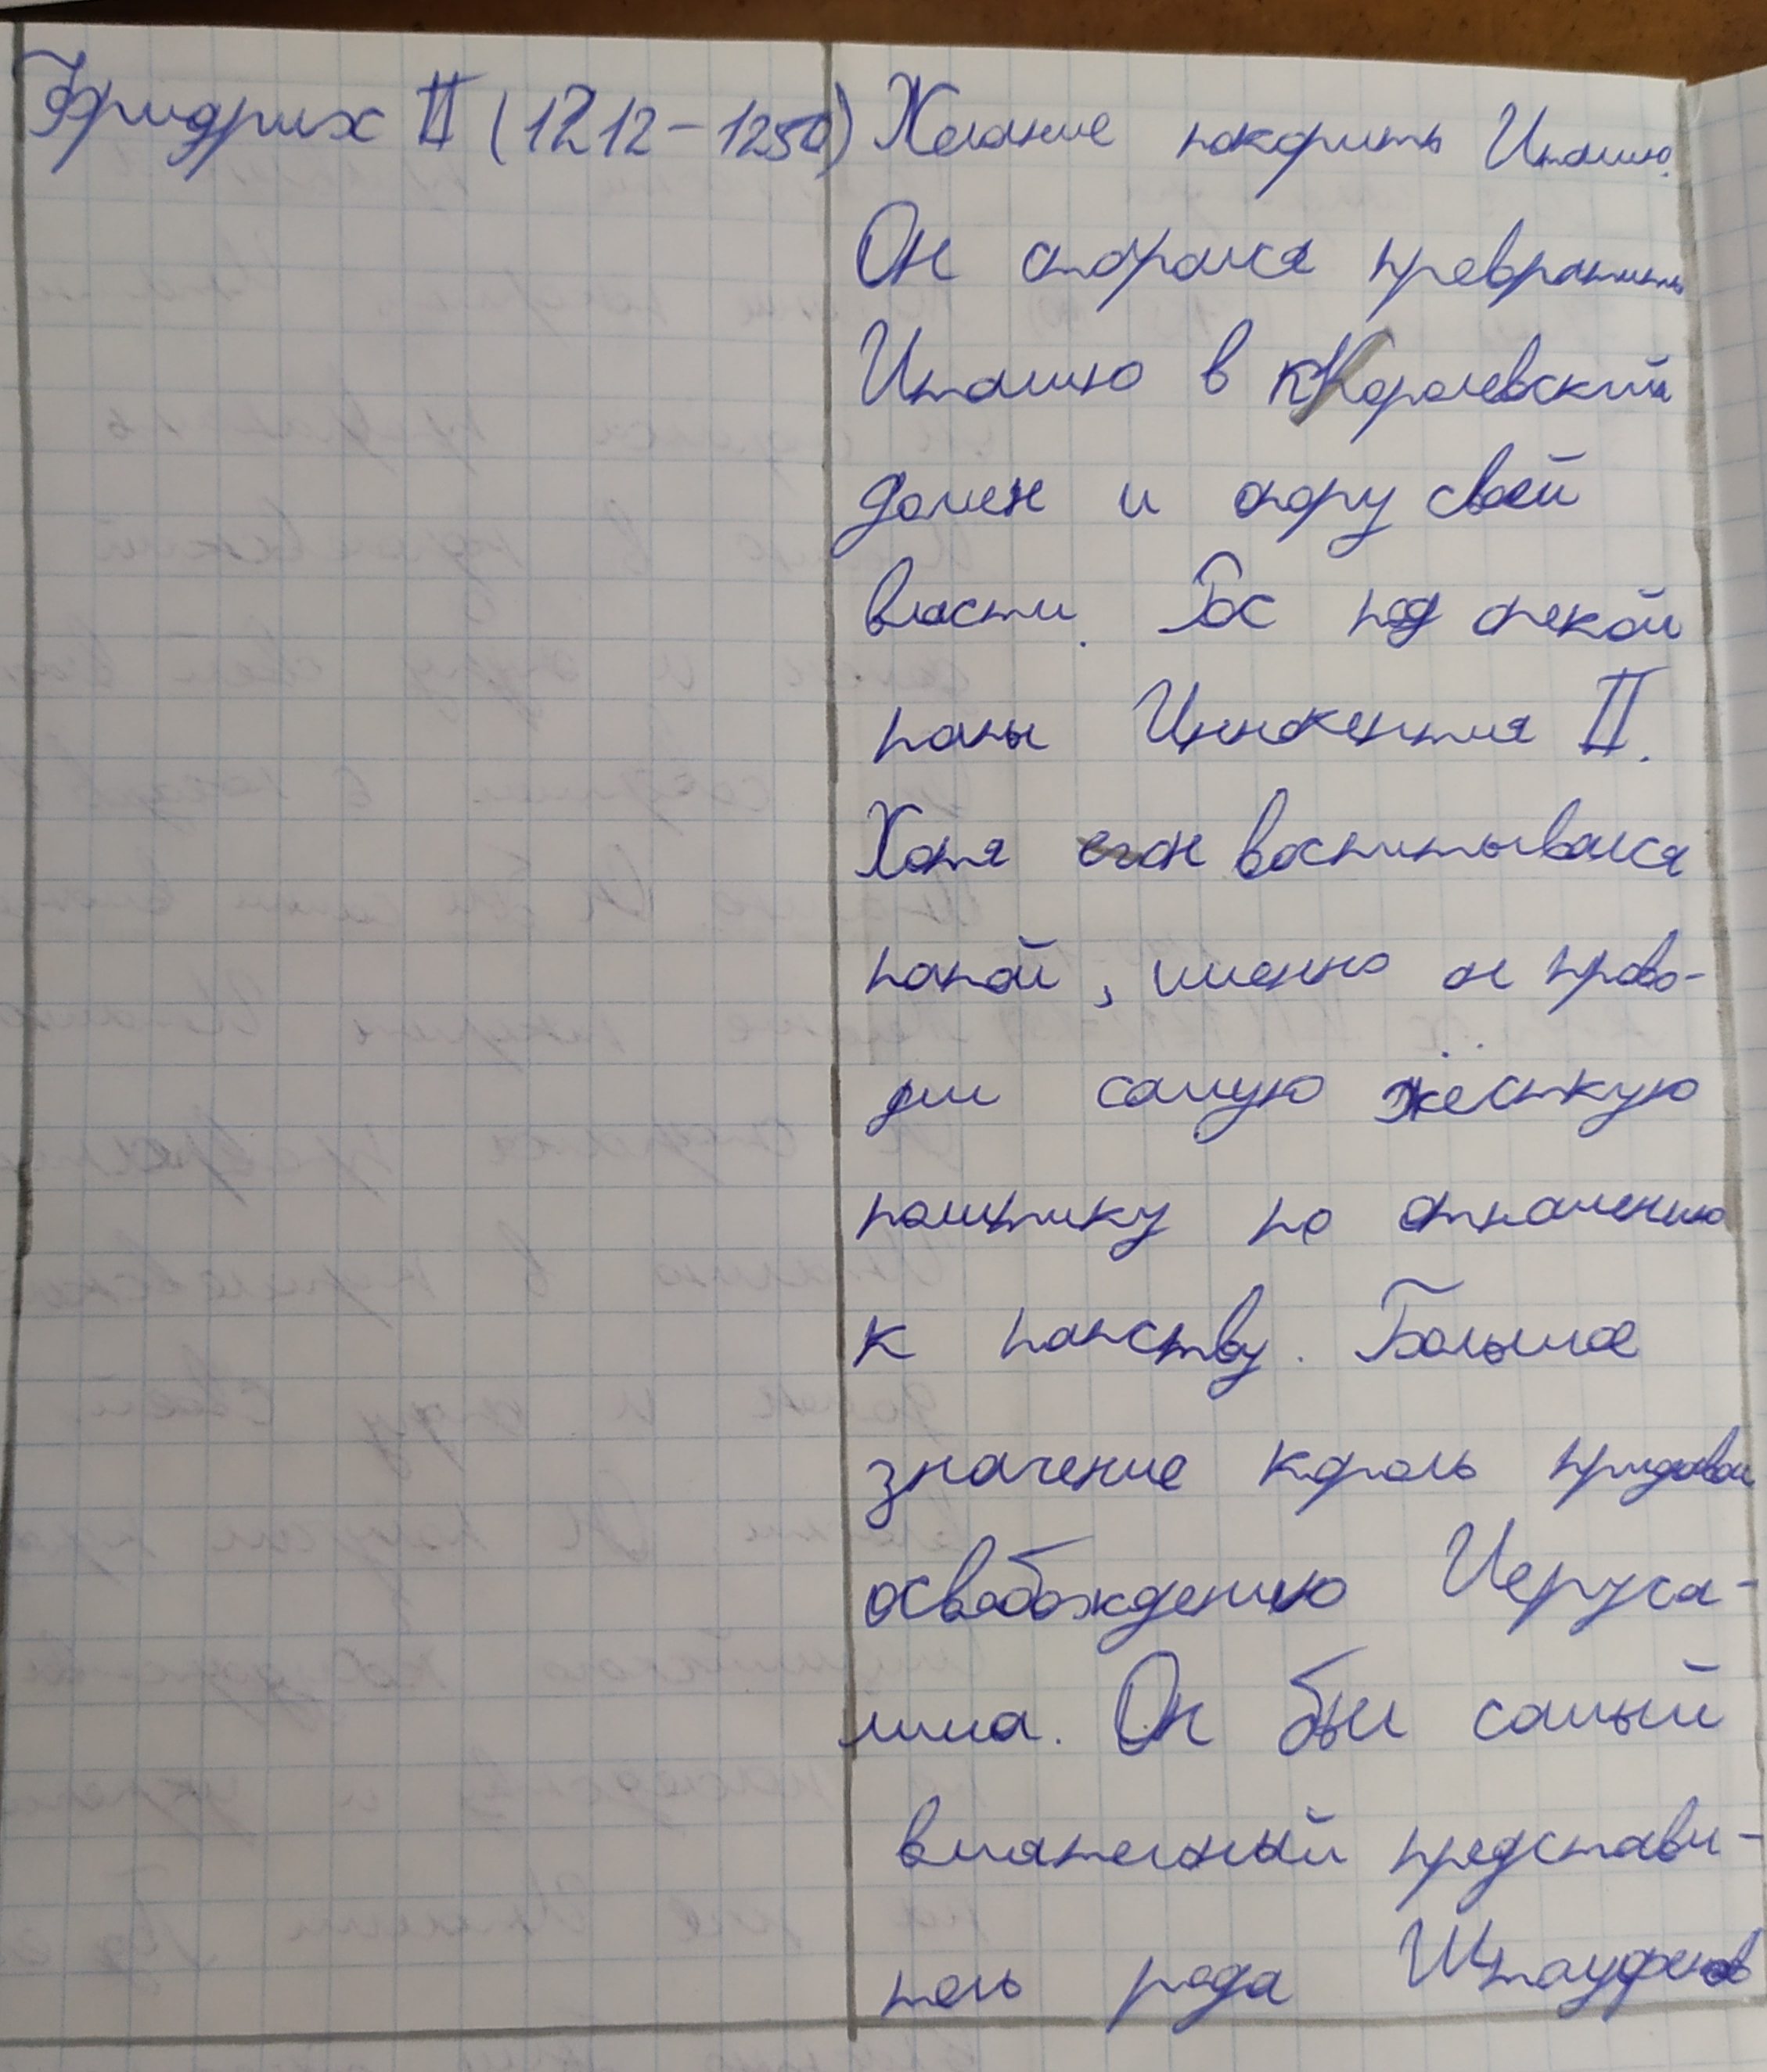 Фридрих II (1212-1250)
Желание покорить Италию.
Он старался превратить
Италию в королевский
домен и опору своей
власти. Рос под опекой
папы Иннокентия II.
Хотя он воспитывался
папой, именно он прово-
дил самую жёсткую
политику по отношению
к папству. Большое
значение король придавал
освобождению Иеруса-
лима. Он был самый
влиятельный представи-
тель рода Штауфенов